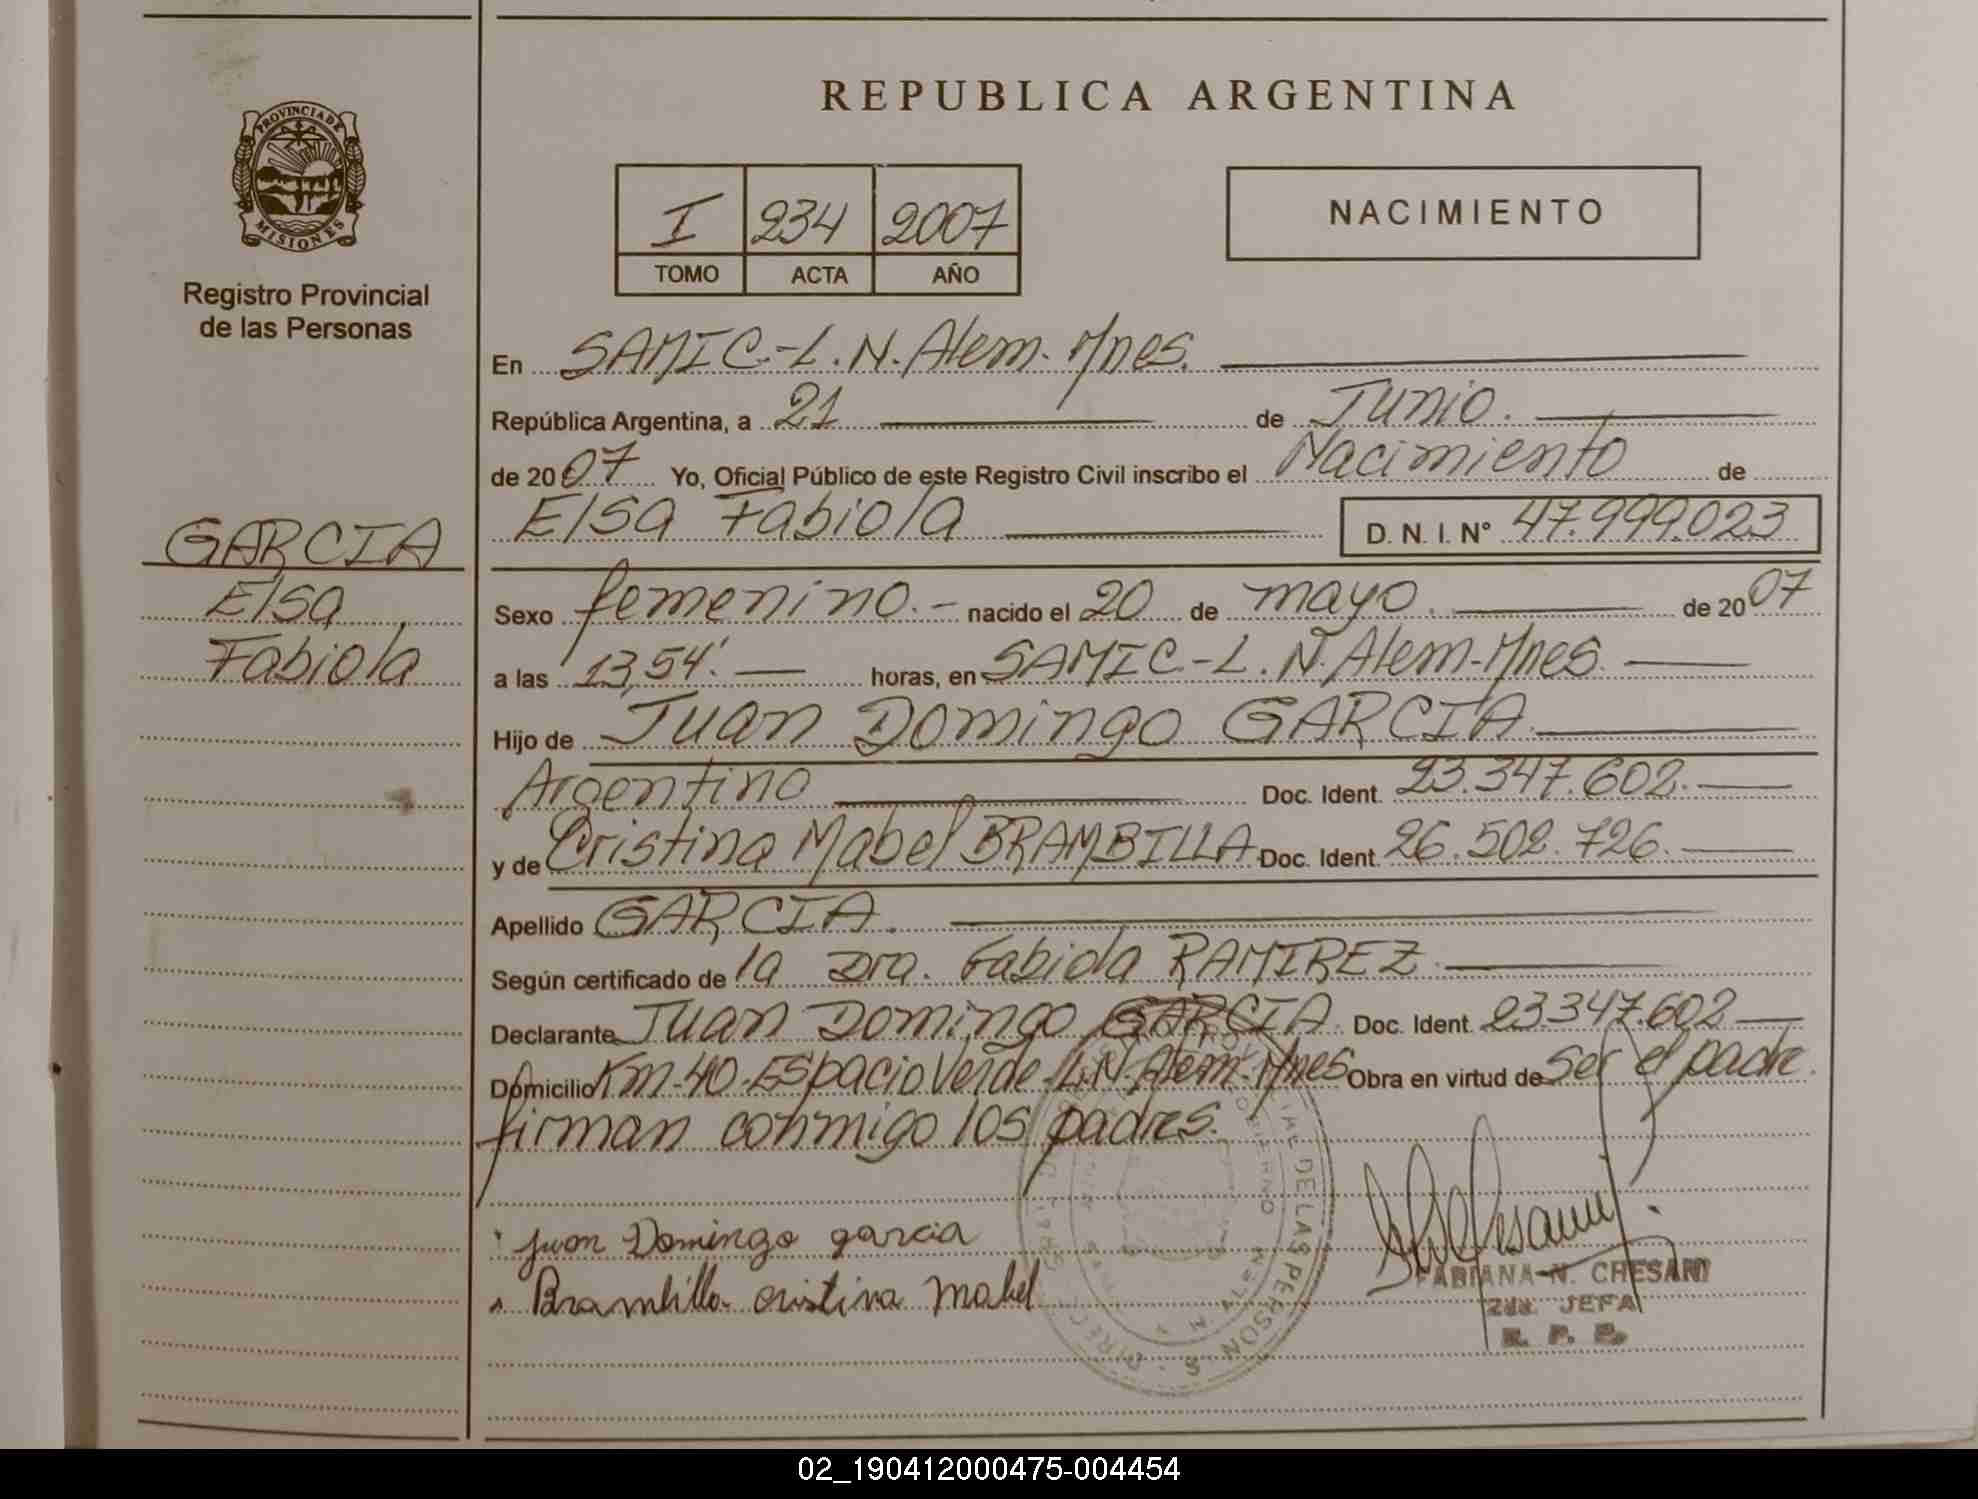 PROVINCIA DE
MISIONES
Registro Provincial
de las Personas
GARCIA
Elsa
Fabiola
REPUBLICA ARGENTINA
I 234 2007
TOMO ACTA AÑO
NACIMIENTO
En SAMIC.-L.N.Alem-Mnes.
República Argentina, a 21 de Junio.
de 2007 Yo, Oficial Público de este Registro Civil inscribo el Nacimiento de
Elsa Fabiola D. N. I. N° 47.999.023
Sexo femenino.- nacido el 20 de mayo. de 2007
a las 13,54'. horas, en SAMIC-L.N.Alem-Mnes.
Hijo de Juan Domingo GARCIA
Argentino Doc. Ident. 23.347.602.
y de Cristina Mabel BRAMBILLA Doc. Ident. 26.502.726.
Apellido GARCIA.
Según certificado de la Dra. Fabiola RAMIREZ.
Declarante Juan Domingo GARCIA. Doc. Ident. 23.347.602
Domicilio Km-40-Espacio Verde-L.N.Alem-Mnes Obra en virtud de ser el padre.
firman conmigo los padres.
Juan Domingo garcia
Brambilla cristina Mabel
FABIANA N. CHESANI
2da. JEFA
R. P. P.
DE LAS PERSONAS
02_190412000475-004454